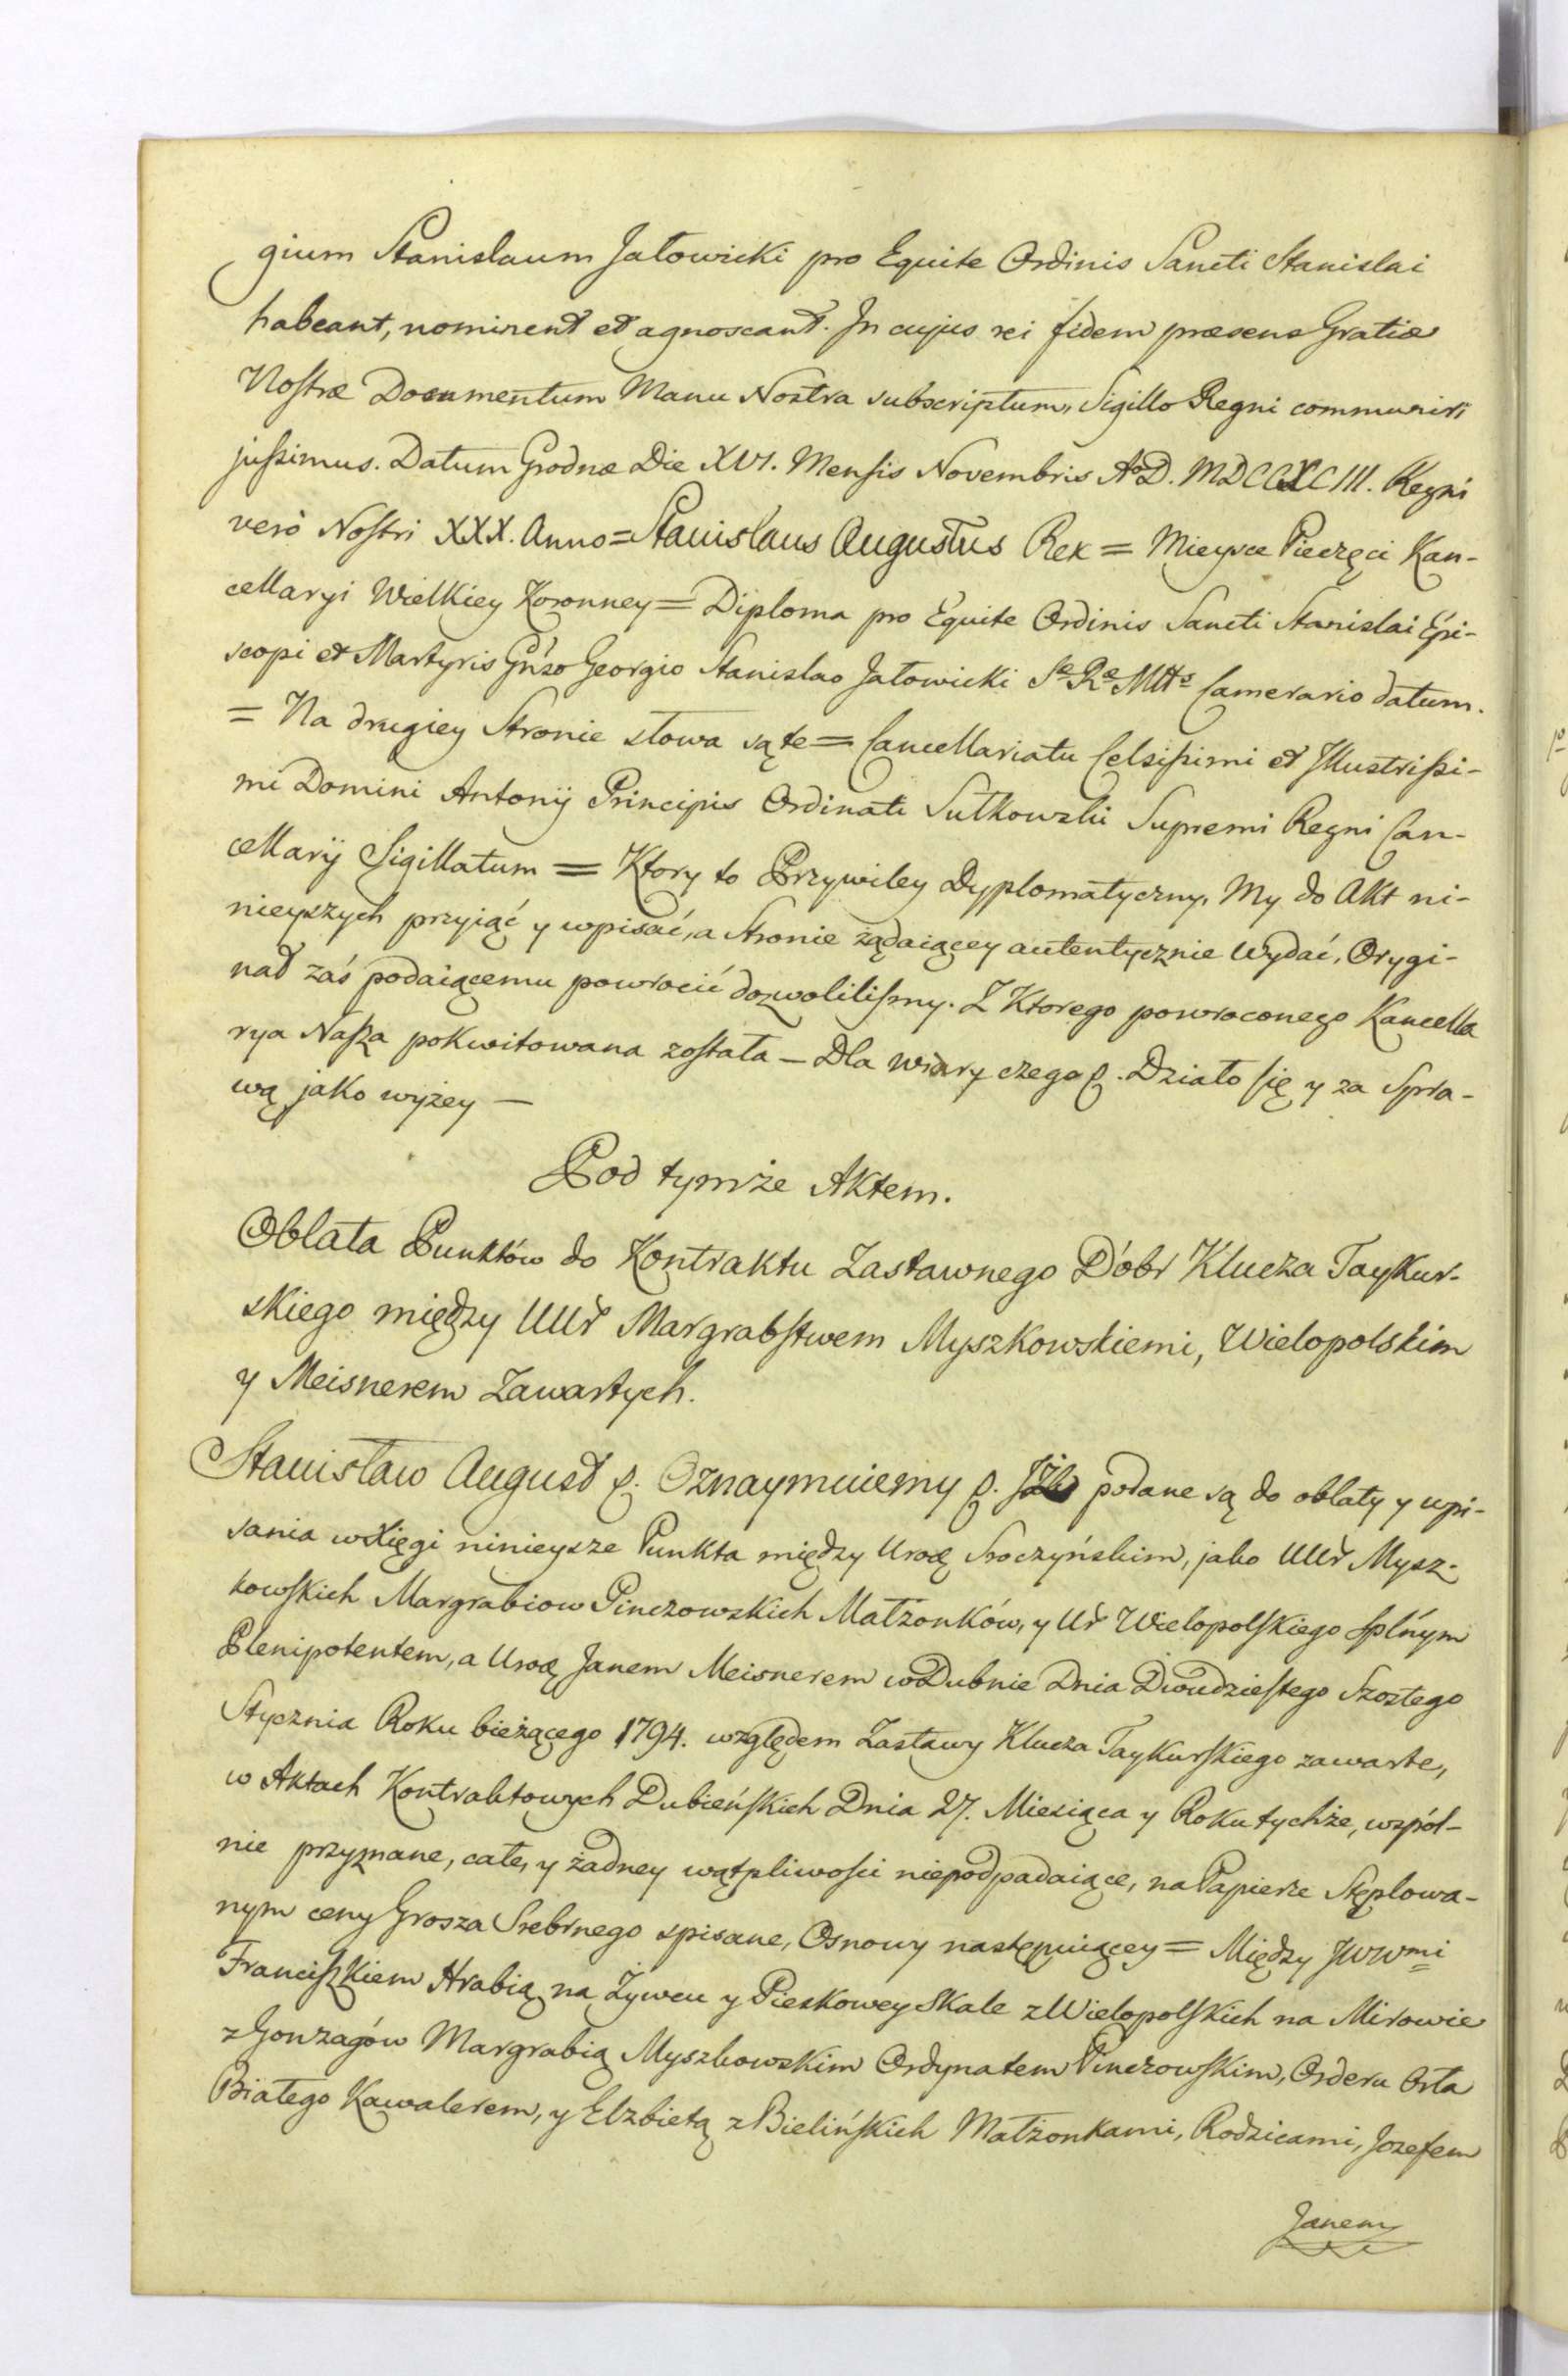 gium Stanislaum Jałowicki pro Equite Ordinis Sancti Stanislai
habeant, nominent et agnoscant. In cujus rei fidem præsens Gratiæ
Nostræ Documentum Manu Nostra subscriptum, Sigillo Regni communiri
jussimus. Datum Grodnæ Die XVI. Mensis Novembris Aº D. MDCCXCIII. Regni
verò Nostri XXX. Anno = Stanislaus Augustus Rex = Mieysce Pieczęci Kan-
cellaryi Wielkiey Koronney = Diploma pro Equite Ordinis Sancti Stanislai Epi-
scopi et Martyris Gnso Georgio Stanislao Jałowicki Sæ Ræ Mttis Camerario datum.
= Na drugiey Stronie słowa są te = Cancellariatu Celsissimi et Illustrissi-
mi Domini Antonij Principis Ordinati Sułkowski Supremi Regni Can-
cellarij Sigillatum = Ktory to Przywiley Dyplomatyczny, My do Akt ni-
nieyszych przyiąć y wpisać, a Stronie żądaiącey autentycznie wydać, Orygi-
nał zaś podaiącemu powrocić dozwolilismy. Z Ktorego powroconego Kancella
rya Nasza pokwitowana została — Dla wiary czego p. Działo się y za Spra-
wą jako wyżey —
Pod tymże Aktem.
Oblata Punktów do Kontraktu Zastawnego Dóbr Klucza Taykur-
skiego między UUr Margrabstwem Myszkowskiemi, Wielopolskim
y Meisnerem Zawartych.
Stanisław August p. Oznaymuiemy p. Iż podane są do oblaty y wpi-
sania w Xięgi ninieysze Punkta między Urodz Sroczyńskim, jako UUr Mysz-
kowskich Margrabiow Pinczowskich Małżonków, y Ur Wielopolskiego splnym
Plenipotentem, a Urodz Janem Meisnerem w Dubnie Dnia Dwudziestego Szostego
Stycznia Roku bieżącego 1794. względem Zastawy Klucza Taykurskiego zawarte,
w Aktach Kontraktowych Dubieńskich Dnia 27. Miesiąca y Roku tychże, wspól-
nie przyznane, całe, y żadney wątpliwości niepodpadaiące, na Papierze Stęplowa-
nym ceny Grosza Srebrnego spisane, Osnowy następuiącey = Między JWWmi
Franciszkiem Hrabią na Żywcu y Pieskowey Skale z Wielopolskich na Mirowie
z Gonzagów Margrabią Myszkowskim Ordynatem Pinczowskim, Orderu Orła
Białego Kawalerem, y Elzbietą z Bielińskich Małżonkami, Rodzicami, Jozefem
Janem